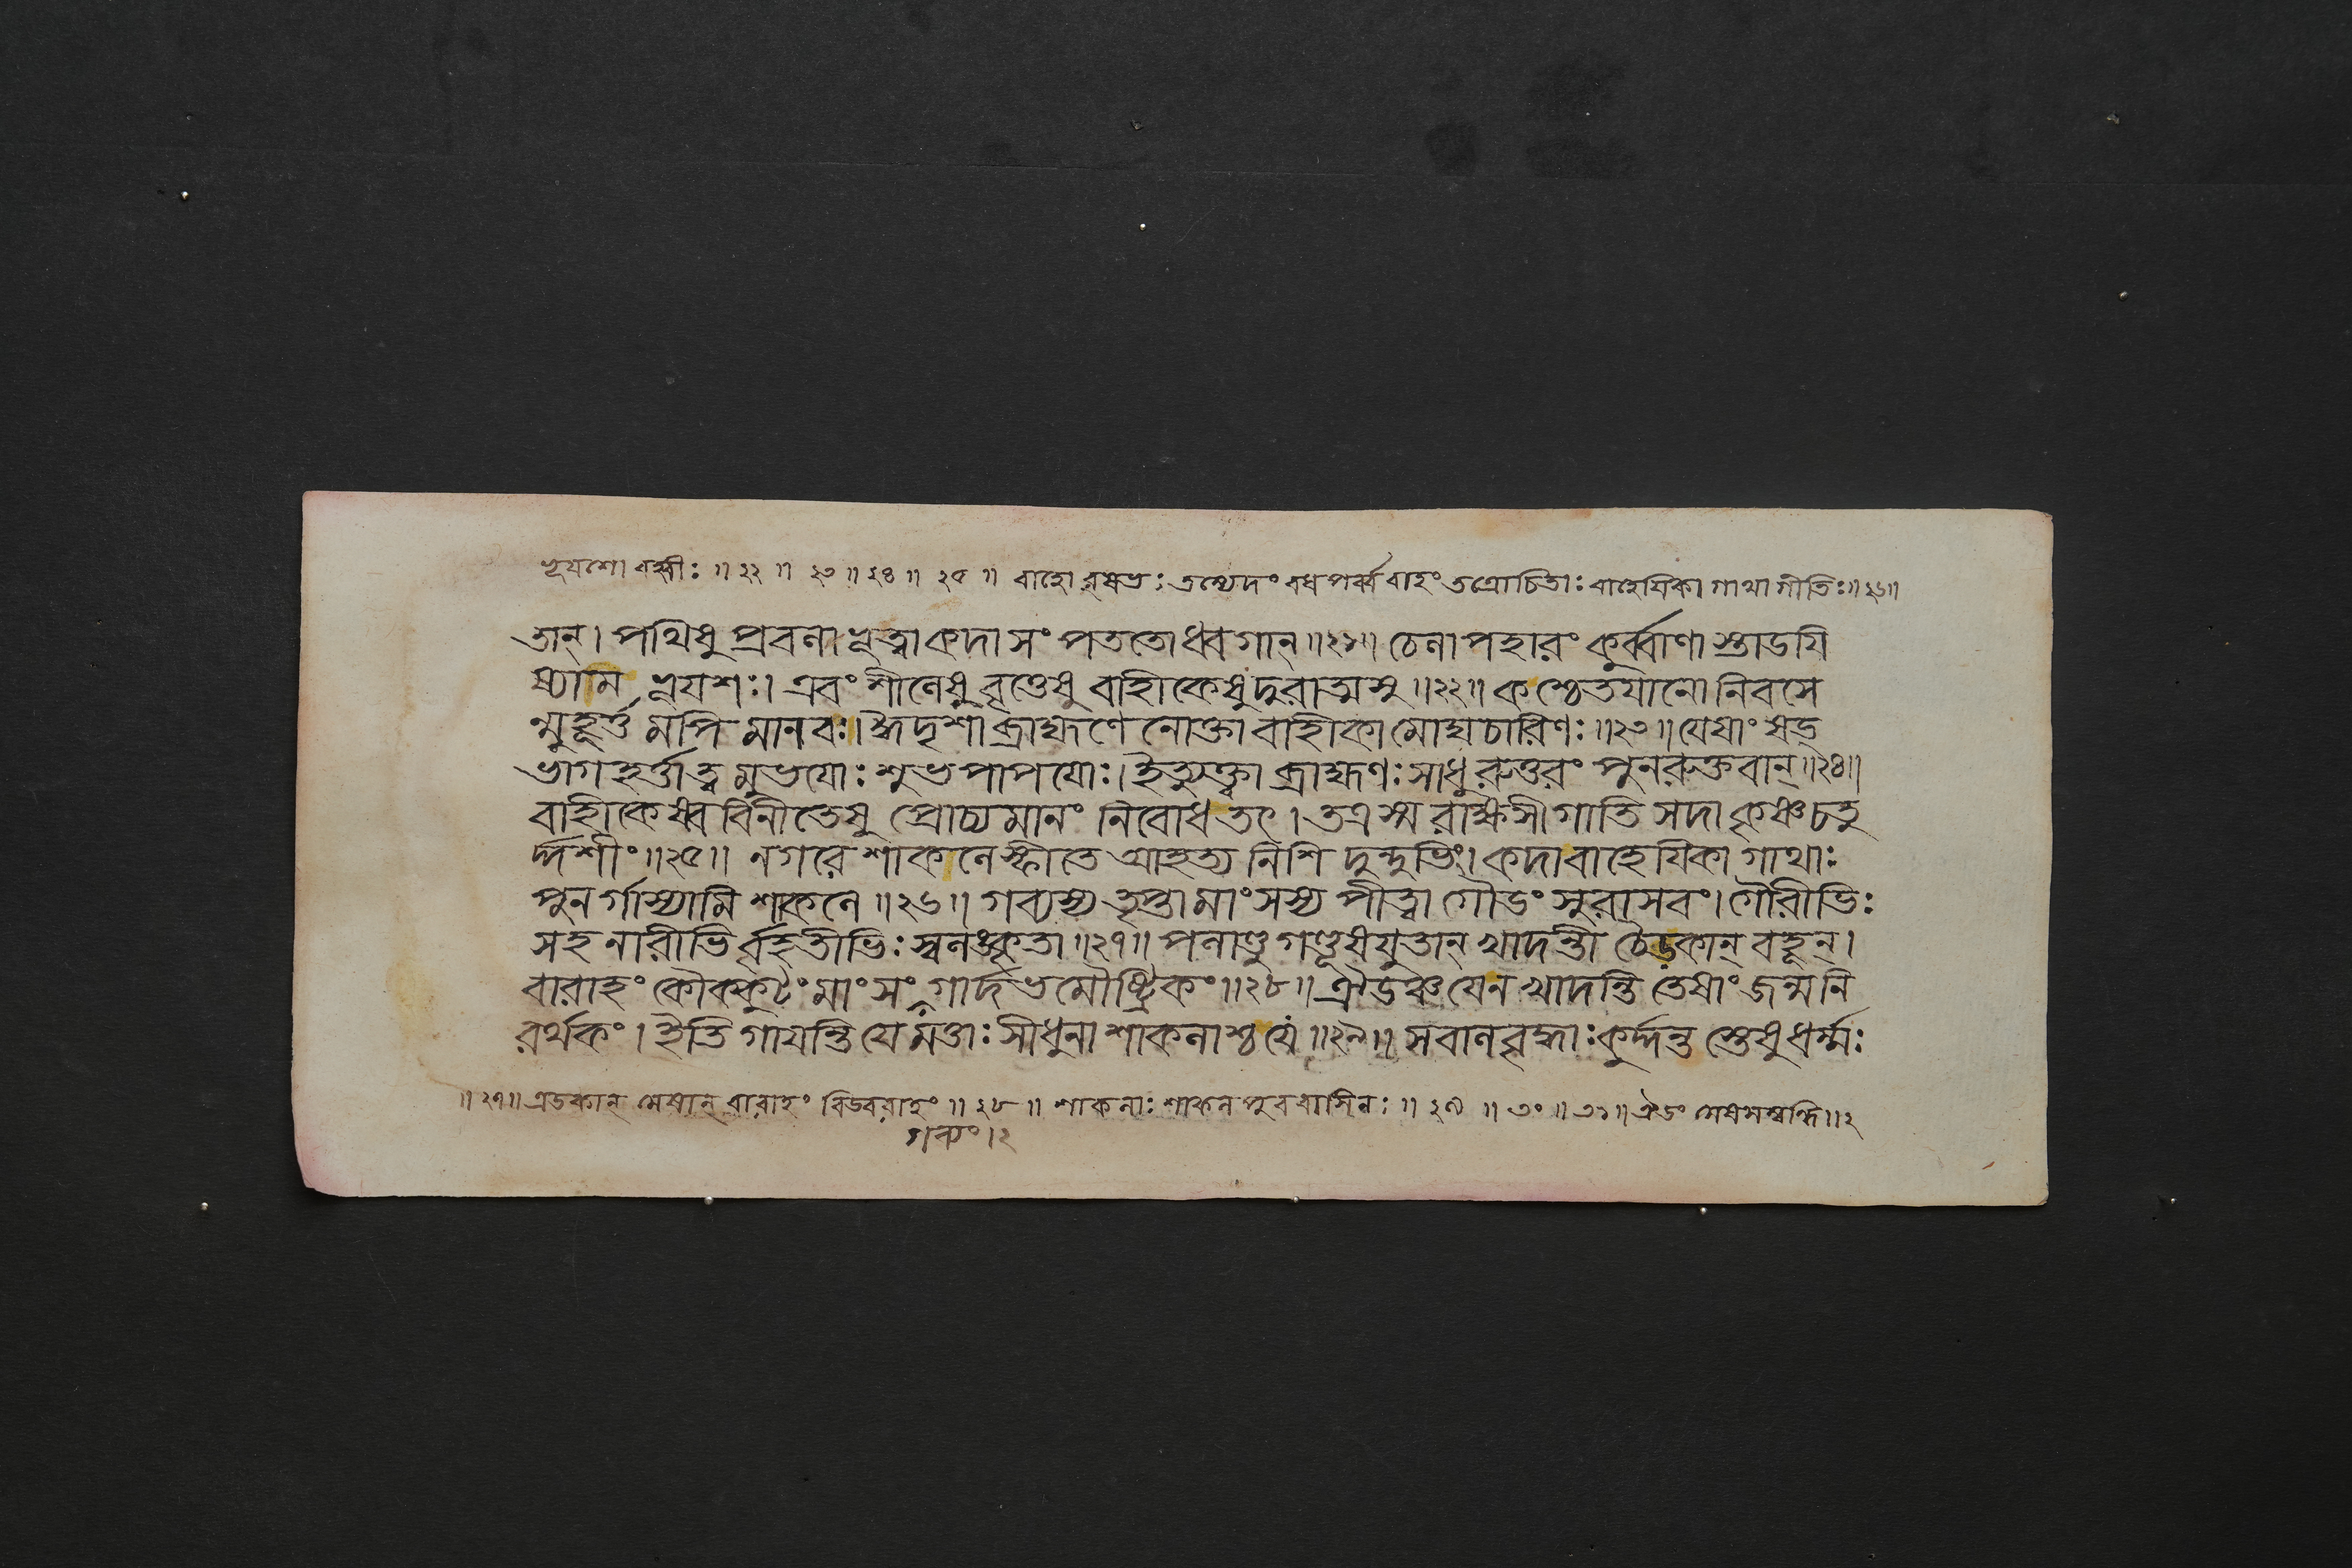 ভূযশো বহ্বীঃ ॥ ২২ ॥ ২৩ ॥ ২৪ ॥ ২৫ ॥ বাহেযিকা গাথা গীতিঃ ॥ ২৬ ॥
তান্। পথিষু প্রবলা ভূত্বা কদা সং পততোধ্বগান্ ॥ ২১ ॥ চেলাপহারং কুর্ব্বাণা স্তাডযি
ষ্যাম ভূযশঃ। এবং শীলেষু বৃত্তেষু বাহীকেষু দুরাত্মসু ॥ ২২ ॥ ক শ্চেতযানো নিবসে
ন্মুহূর্ত্ত মপি মানবঃ। ঈদৃশা ব্রাহ্মণে নোক্তা বাহীকা মোঘচারিণঃ ॥ ২৩ ॥ যেষাং ষড্
ভাগহর্ত্তা ত্ব মুভযোঃ শুভপাপযোঃ। ইত্যুক্ত্বা ব্রাহ্মণঃ সাধু রুত্তরং পুনরুক্তবান্ ॥ ২৪ ॥
বাহীকেষ্ব বিনীতেষু প্রোচ্যমানং নিবোধ তৎ। তত্র স্ম রাক্ষসী গাতি সদা কৃষ্ণচতু
র্দ্দশীং ॥ ২৫ ॥ নগরে শাকলে স্ফীতে আহত্য নিশি দুন্দুভিং। কদা বাহেযিকা গাথাঃ
পুন র্গাস্যামি শাকলে ॥ ২৬ ॥ গব্যস্য তৃপ্তা মাংসস্য পীত্বা গৌডং সুরাসবং। গৌরীভিঃ
সহ নারীভি র্বৃহতীভিঃ স্বলঙ্কৃতা ॥ ২৭ ॥ পলাণ্ডু গণ্ডূষযুতান্ খাদন্তী চৈডকান্ বহূন্।
বারাহং কৌক্কুটং মাংসং গার্দ্দভমৌষ্ট্রিকং ॥ ২৮ ॥ ঐডঞ্চ যে ন খাদন্তি তেষাং জন্ম নি
রর্থকং। ইতি গাযন্তি যে মত্তাঃ সীধুনা শাকলাশ্চ যে ॥ ২৯ ॥ সবালবৃদ্ধাঃ কুর্দ্দন্ত স্তেষু ধর্ম্মঃ
॥ ২৭ ॥ এডকান্ মেষান্ বারাহং বিডবরাহং ॥ ২৮ ॥ শাকলাঃ শাকলপুরবাসিনঃ ॥ ২৯ ॥ ৩০ ॥ ৩১ ॥ ঐডং মেষসম্বন্ধি ॥ ২
গব্যং। ২